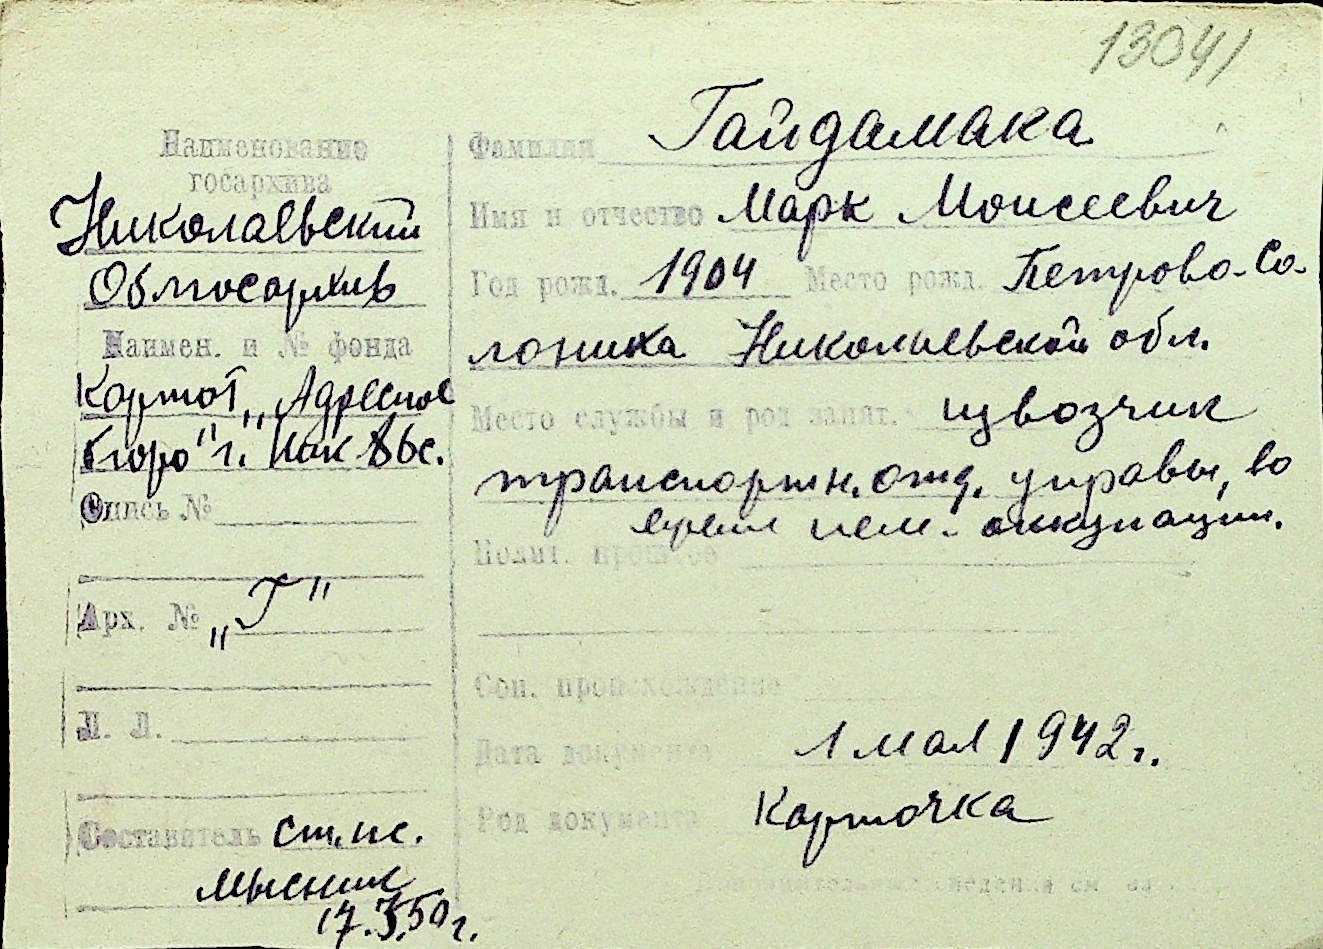 13041
Наименование
госархива
Николаевский
Облгосархив
Наимен. и № фонда
Картот. „Адресное
бюро" г. Ник
Опись №
Арх. № „Г"
Л. Л.
Составитель ст. нс.
Мысник
17.3.50 г.
Фамилия Гайдамака
Имя и отчество Марк Моисеевич
Год рожд. 1904 Место рожд. Петрово-Со-
лониха Николаевской обл.
Место службы и род занят. извозчик
транспортн. отд. управы, во
время нем. оккупации.
Полит. прошлое
Соц. происхождение
Дата документа 1 мая 1942 г.
Род документа Карточка
Дополнительные сведения см. на